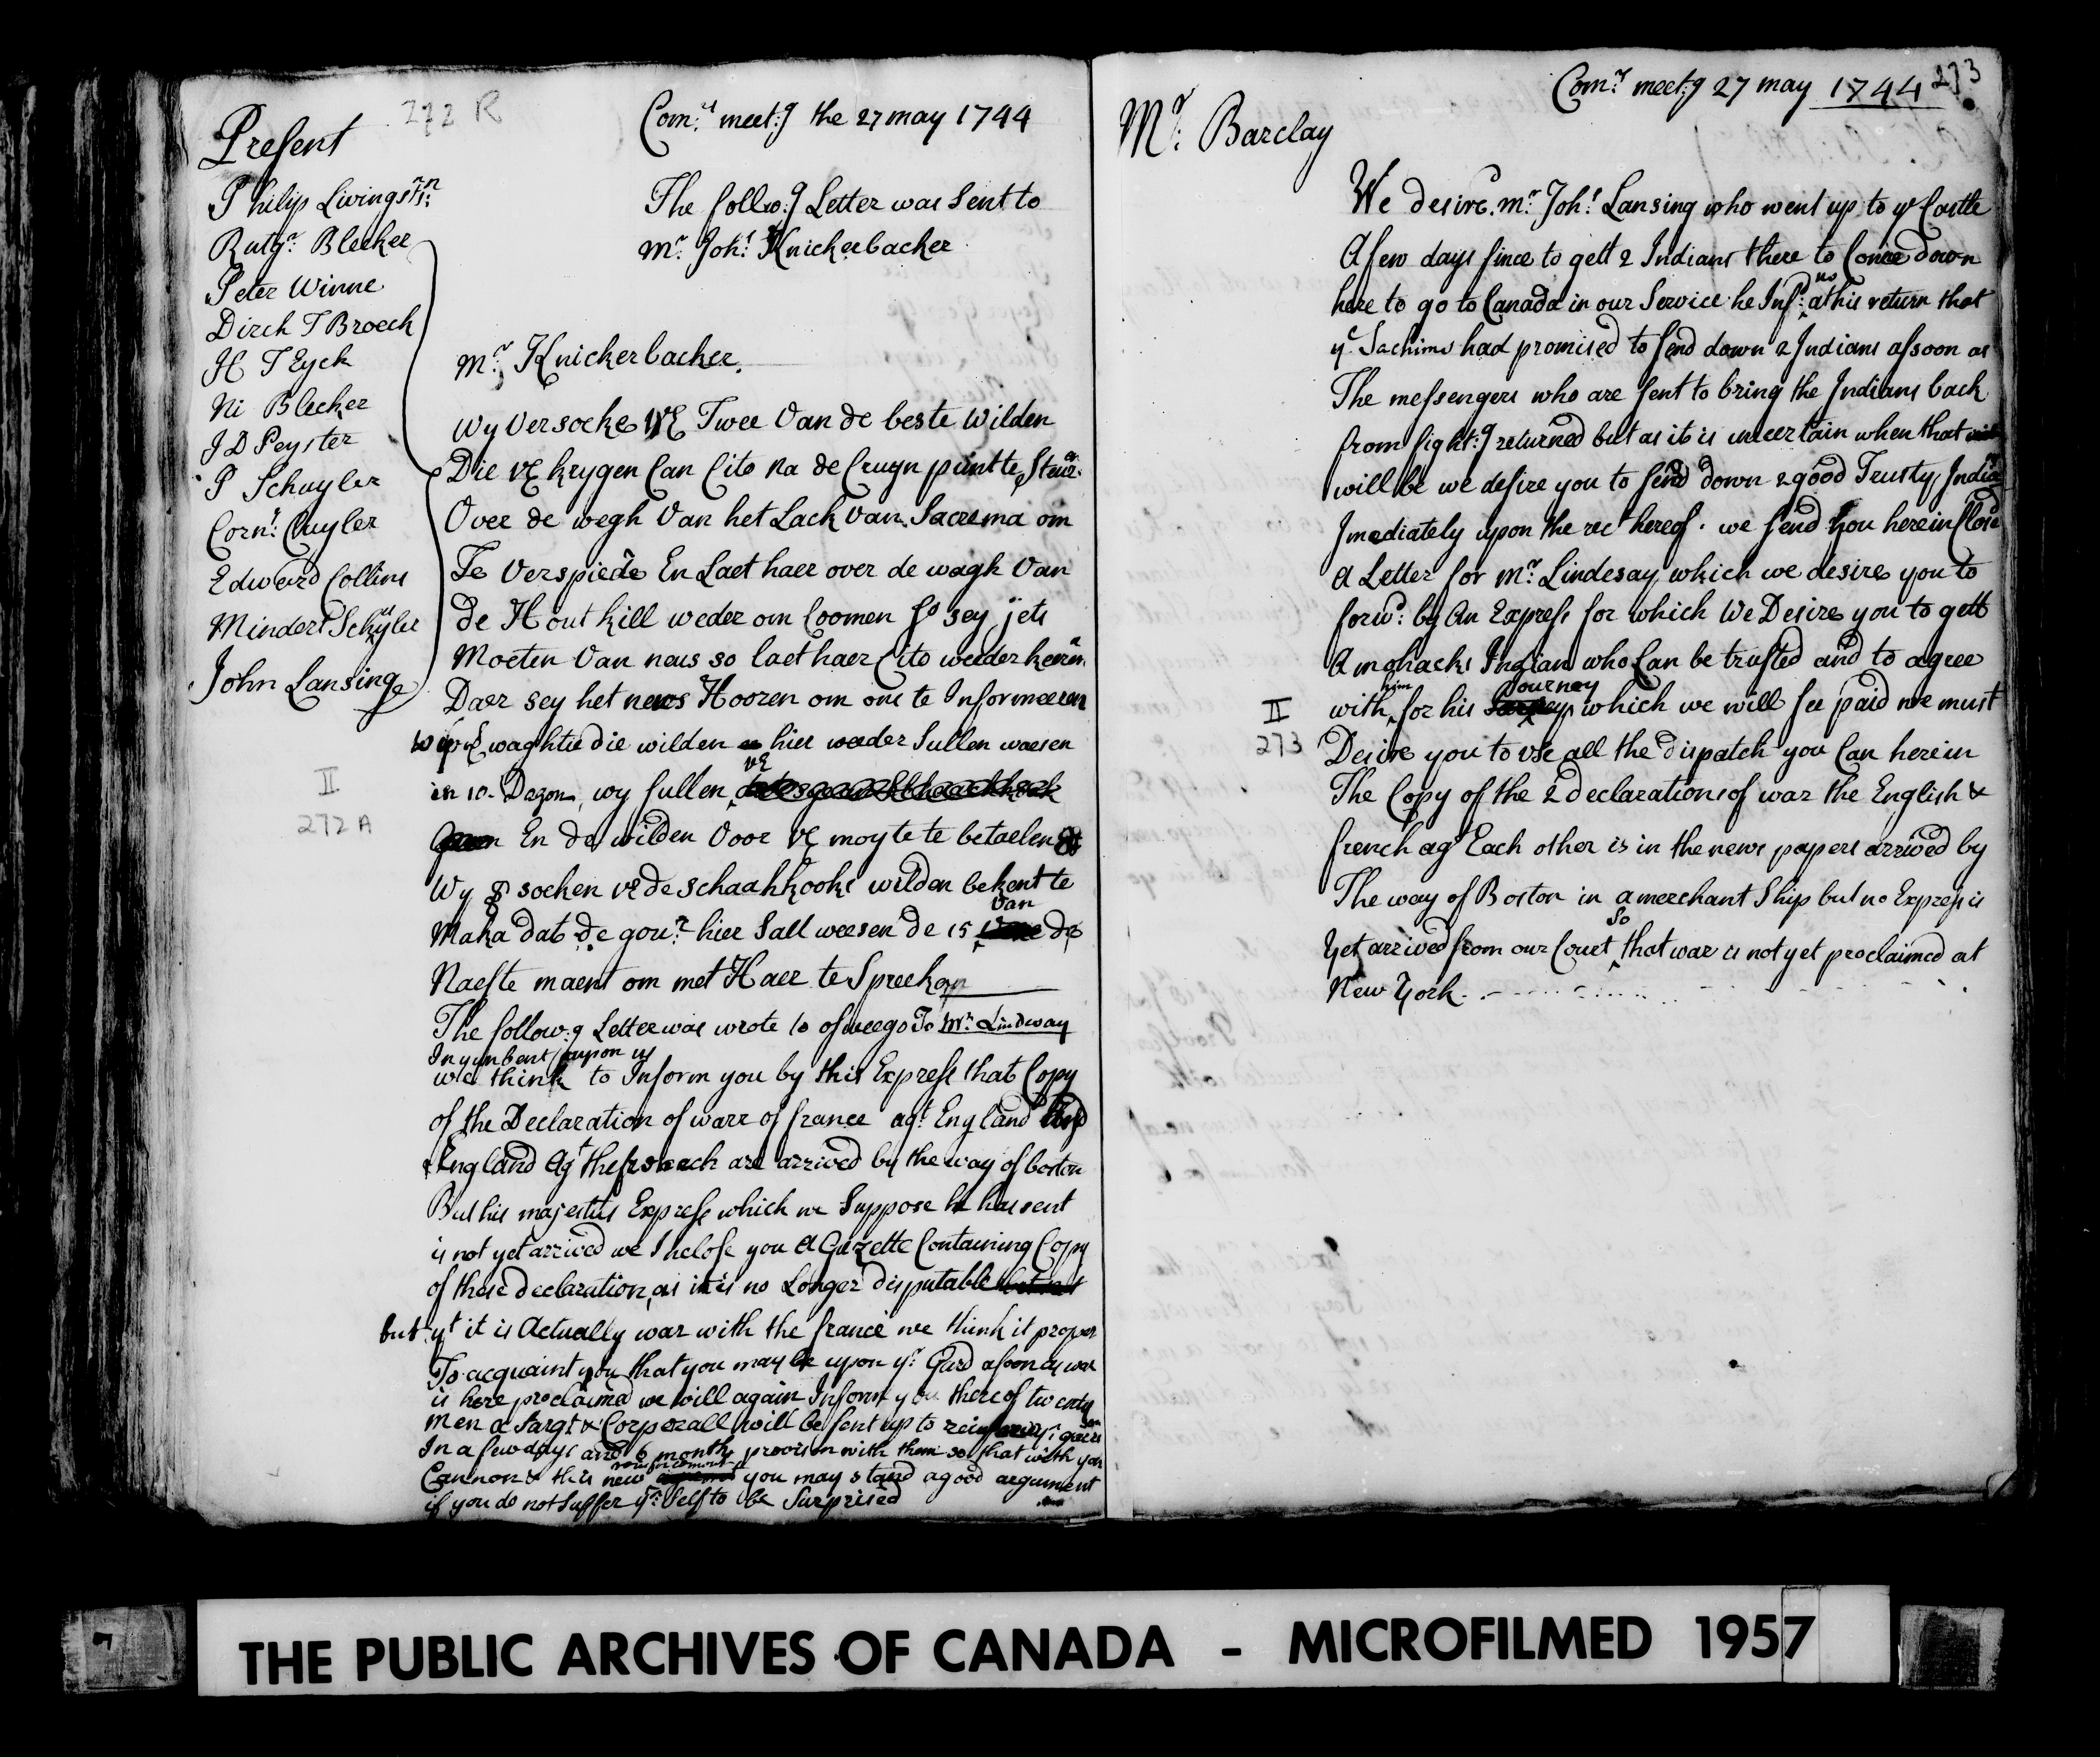 272 R
Com:rs meet:g the 27 may 1744
Present
Philip Livingstn Jr:
Rutgr: Blecker
Peter Winne
Dirck T Broeck
H T Eyck
Ni Blecker
J D Peyster
P Schuyler
Corns: Cuyler
Edward Collins
Mindert Schuyler
John Lansinge
The follow:g Letter was Sent to
mr. Johs Knickerbacker
mr: Knickerbacker.
Wy Versoeke VE Twee Van de beste Wilden
Die VE krygen Can Cito na de Cruyn puntte Stuer.
Over de wegh Van het Lack Van Sacrema om
Te Verspiede En Laet haer over de wagh Van
de Hout kill weder om Coomen so sey jets
Moeten Van neus so laet haer Cito weder keren
Daer sey het news Hooren om ons te Informeeren
waghte die wilden hier weeder Sullen waesen
II
272 A
in 10. Dagen, wy sullen VE
En de wilden Voor VE moyte te betaelen
Wy soeken VE de Schaahkooks wilden bekent te
Maka dat de gour: hier Sall weesen de 15 Van de
Naeste maent om met Haer te Spreeken
The follow:g Letter was wrote to osweego To Mr: Lindway
Incumbent upon us
we think to Inform you by this Express that Copy
of the Declaration of warr of france agt England And
England Agt the french are arrived by the way of boston
But his majesties Express which we Suppose he has sent
is not yet arrived we Inclose you A Gazette Containing Copy
of these declaration, as it is no Longer disputable
but yt it is Actually war with the france we think it proper
To acquaint you that you may be upon yr: Gard asoon as war
is here proclaimed we will again Inform you thereof twenty
men a Sargt & Corporall will be sent up to reinforce yr: garrison
In a few days and 6 months provision with them so that with your
Cannon & this new reinforcement you may stand a good argument
if you do not Suffer yr: Self to be Surprised
Comrs meet:g 27 may 1744
273
Mr: Barclay
We desire mr: Johs Lansing who went up to ye Castle
A few days since to gett 2 Indians there to Come down
here to go to Canada in our Service he Infd: us at his return that
ye Sachims had promised to send down 2 Indians assoon as
The messengers who are sent to bring the Indians back
from fight:g returned but as it is uncertain when that
will be we desire you to send down 2 good Trusty Indians
Imediately upon the rect hereof. we send you hereinclosed
a Letter for Mr: Lindesay which we desire you to
forwd: by An Express for which We Desire you to gett
A mohacks Indian who Can be trusted and to agree
with him for his Journey which we will see paid we must
II
273
Desire you to use all the dispatch you Can herein
The Copy of the 2 declarations of war the English &
french agt Each other is in the news papers arrived by
The way of Boston in a merchant Ship but no Express is
Yet arrived from our Court So that war is not yet proclaimed at
New York.
THE PUBLIC ARCHIVES OF CANADA - MICROFILMED 1957